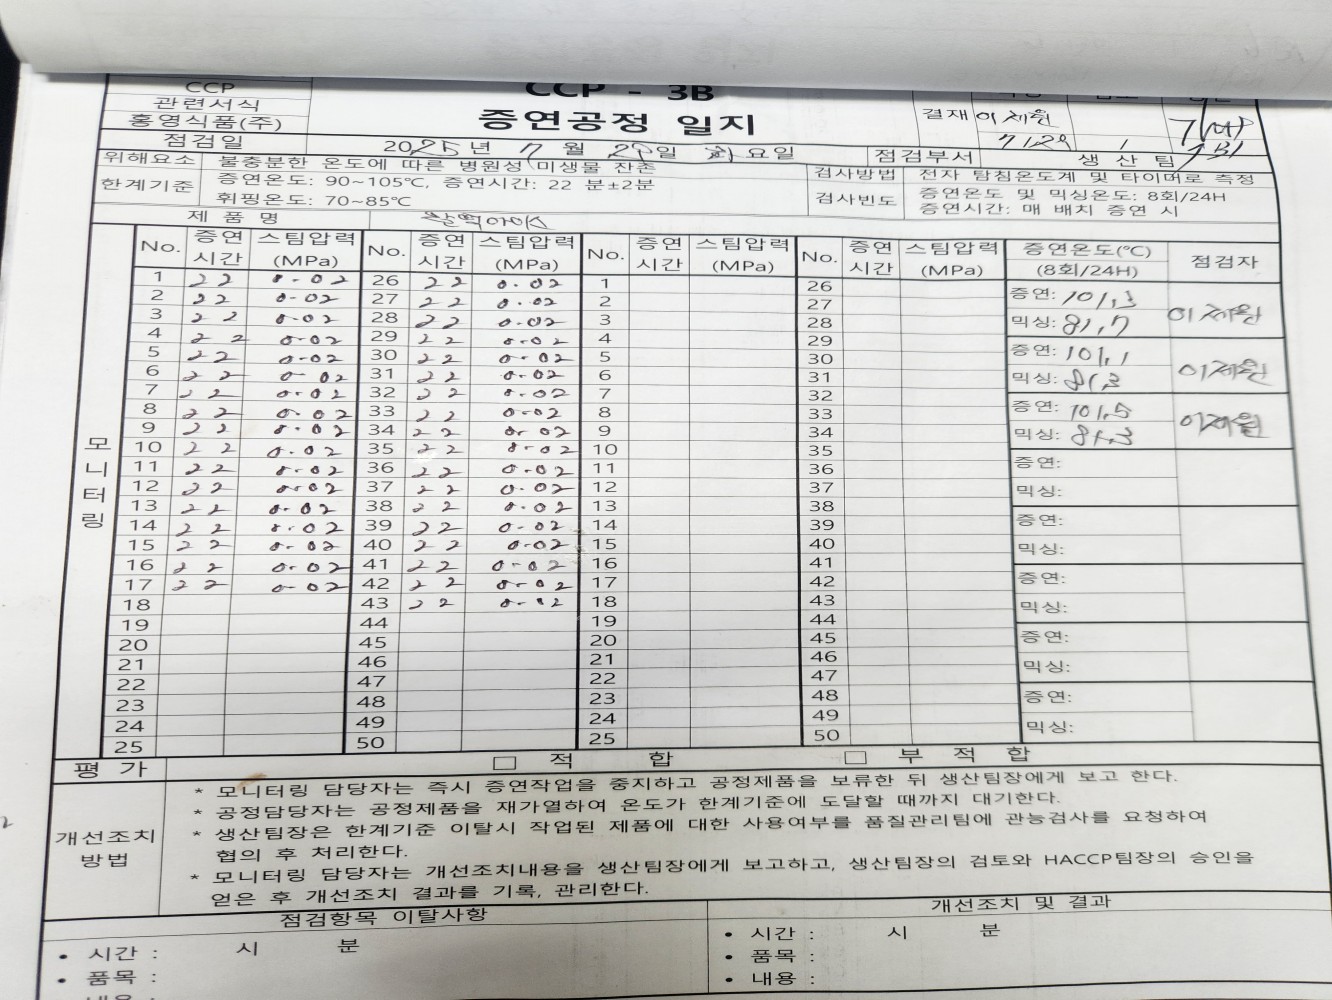 CCP
관련서식
홍영식품(주)
CCP - 3B
증연공정 일지
결재 이재원
7/29
점검일 2025년 7월 29일 화요일 점검부서 생산팀
위해요소 불충분한 온도에 따른 병원성 미생물 잔존 검사방법 전자 탐침온도계 및 타이머로 측정
한계기준 증연온도: 90~105℃, 증연시간: 22 분±2분
휘핑온도: 70~85℃
검사빈도 증연온도 및 믹싱온도: 8회/24H
증연시간: 매 배치 증연 시
제 품 명
No. 증연시간 스팀압력(MPa) No. 증연시간 스팀압력(MPa) No. 증연시간 스팀압력(MPa) No. 증연시간 스팀압력(MPa) 증연온도(℃)(8회/24H) 점검자
모니터링
1 22 0.02 26 22 0.02 1 26 증연: 101.3 이재원
2 22 0.02 27 22 0.02 2 27
3 22 0.02 28 22 0.02 3 28 믹싱: 81.7
4 22 0.02 29 22 0.02 4 29
5 22 0.02 30 22 0.02 5 30 증연: 101.1 이재원
6 22 0.02 31 22 0.02 6 31 믹싱: 81.3
7 22 0.02 32 22 0.02 7 32
8 22 0.02 33 22 0.02 8 33 증연: 101.5 이재원
9 22 0.02 34 22 0.02 9 34 믹싱: 81.3
10 22 0.02 35 22 0.02 10 35
11 22 0.02 36 22 0.02 11 36 증연:
12 22 0.02 37 22 0.02 12 37 믹싱:
13 22 0.02 38 22 0.02 13 38
14 22 0.02 39 22 0.02 14 39 증연:
15 22 0.02 40 22 0.02 15 40 믹싱:
16 22 0.02 41 22 0.02 16 41
17 22 0.02 42 22 0.02 17 42 증연:
18 43 22 0.02 18 43 믹싱:
19 44 19 44
20 45 20 45 증연:
21 46 21 46 믹싱:
22 47 22 47
23 48 23 48 증연:
24 49 24 49 믹싱:
25 50 25 50
평 가 □ 적 합 □ 부 적 합
개선조치
방법
* 모니터링 담당자는 즉시 증연작업을 중지하고 공정제품을 보류한 뒤 생산팀장에게 보고 한다.
* 공정담당자는 공정제품을 재가열하여 온도가 한계기준에 도달할 때까지 대기한다.
* 생산팀장은 한계기준 이탈시 작업된 제품에 대한 사용여부를 품질관리팀에 관능검사를 요청하여
협의 후 처리한다.
* 모니터링 담당자는 개선조치내용을 생산팀장에게 보고하고, 생산팀장의 검토와 HACCP팀장의 승인을
얻은 후 개선조치 결과를 기록, 관리한다.
점검항목 이탈사항 개선조치 및 결과
• 시간 : 시 분 • 시간 : 시 분
• 품목 : • 품목 :
• 내용 : • 내용 :